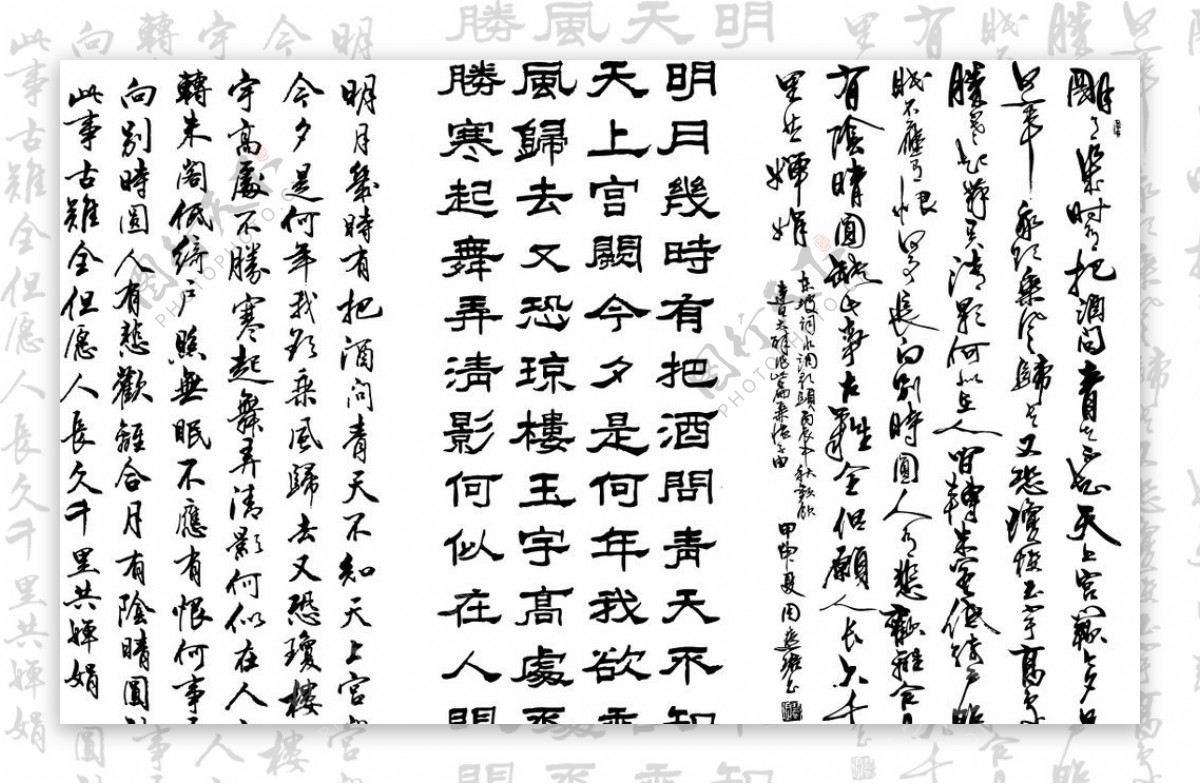 明月幾時有把酒問青天不知天上宮闕今夕是
何年我欲乘風歸去又恐瓊樓玉宇高處
勝寒起舞弄清影何似在人間轉朱閣低綺戶照
眠不應有恨何事長向別時圓人有悲歡離合月
有陰晴圓缺此事古難全但願人長久千
里共嬋娟
東坡詞水調歌頭丙辰中秋歡飲
達旦大醉作此篇兼懷子由
甲申夏周
明月幾時有把酒問青天不知
天上宮闕今夕是何年我欲乘
風歸去又恐琼樓玉宇高處不
勝寒起舞弄清影何似在人間
明月幾時有把酒問青天不知天上宮
今夕是何年我欲乘風歸去又恐瓊樓
宇高處不勝寒起舞弄清影何似在人
轉朱閣低綺戶照無眠不應有恨何事
向別時圓人有悲歡離合月有陰晴圓
此事古難全但愿人長久千里共嬋娟